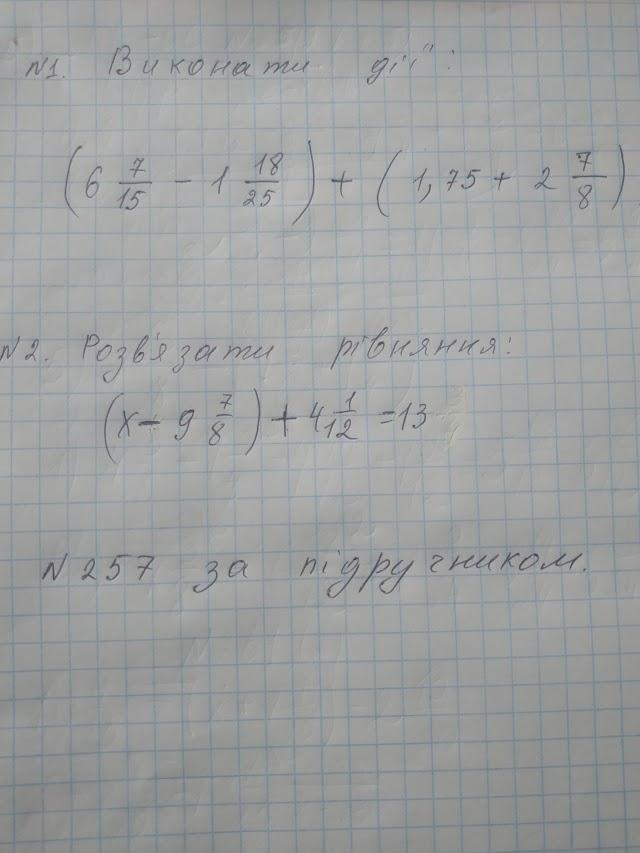 N1. Виконати дії:
(6 7/15 - 1 18/25) + (1,75 + 2 7/8)
N2. Розв'язати рівняння:
(x - 9 7/8) + 4 1/12 = 13
N 257 за підручником.